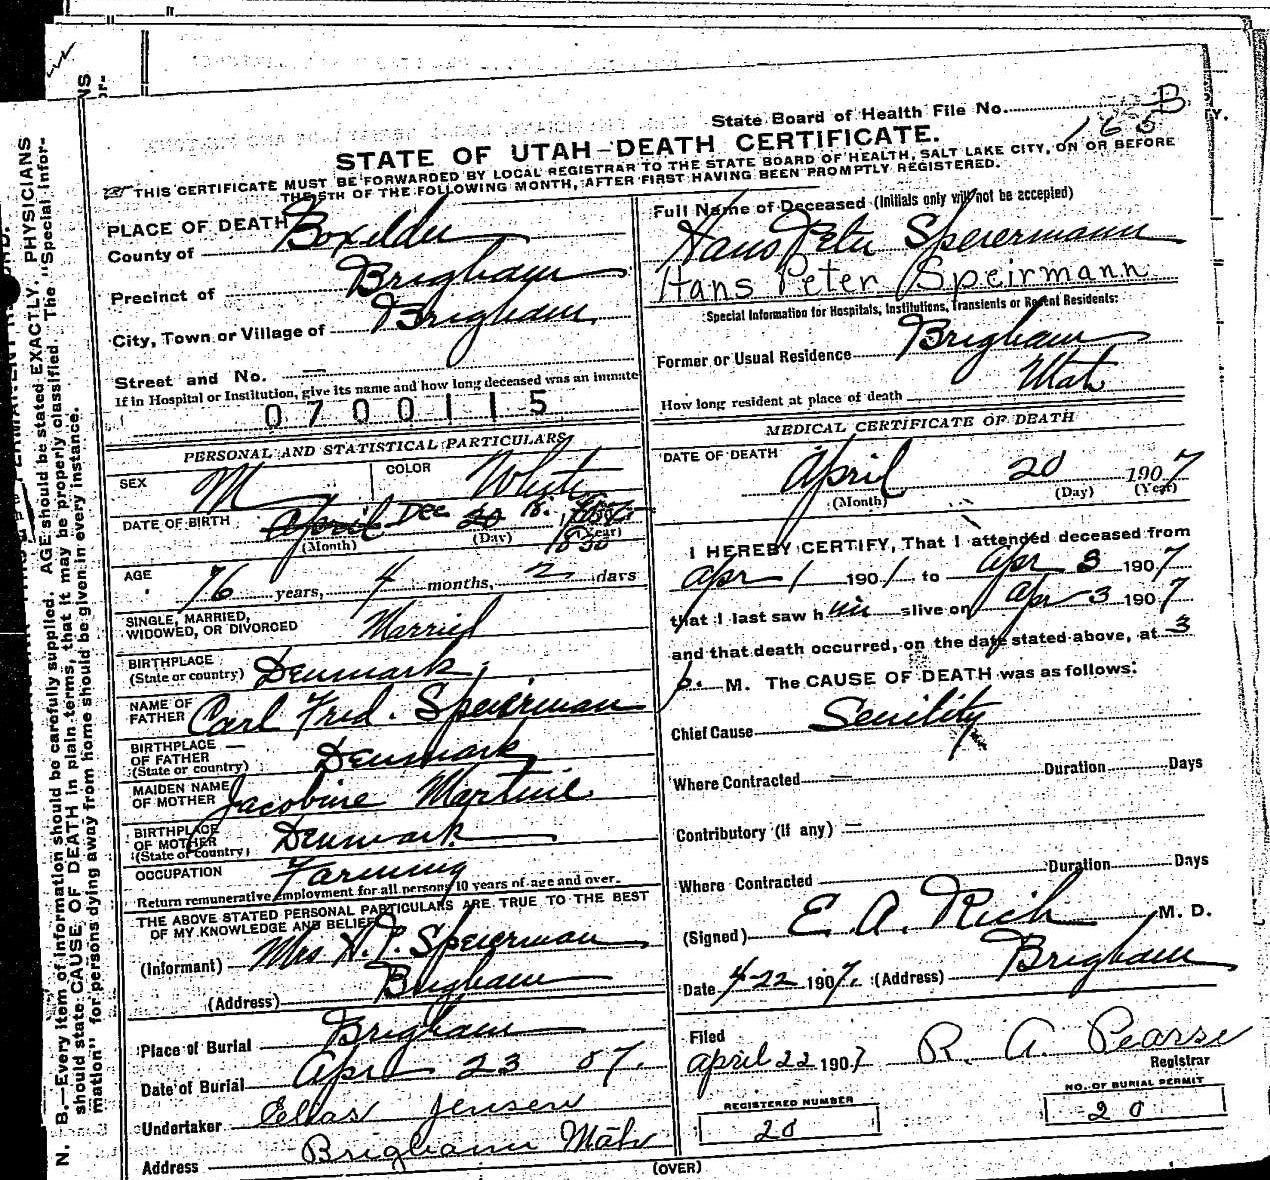 State Board of Health File No. 165 B
STATE OF UTAH—DEATH CERTIFICATE.
THIS CERTIFICATE MUST BE FORWARDED BY LOCAL REGISTRAR TO THE STATE BOARD OF HEALTH, SALT LAKE CITY, ON OR BEFORE
THE 5TH OF THE FOLLOWING MONTH, AFTER FIRST HAVING BEEN PROMPTLY REGISTERED.
PLACE OF DEATH
County of Boxelder
Precinct of Brigham
City, Town or Village of Brigham
Street and No. —
If in Hospital or Institution, give its name and how long deceased was an inmate
0700115
PERSONAL AND STATISTICAL PARTICULARS
SEX M COLOR White
DATE OF BIRTH April Dec 20 18
(Month) (Day) (Year)
1830
AGE 76 years, 4 months, 2 days
SINGLE, MARRIED,
WIDOWED, OR DIVORCED Married
BIRTHPLACE
(State or country) Denmark
NAME OF
FATHER Carl Fred. Speierman
BIRTHPLACE
OF FATHER
(State or country) Denmark
MAIDEN NAME
OF MOTHER Jacobine
BIRTHPLACE
OF MOTHER
(State or country) Denmark
OCCUPATION Farming
Return remunerative employment for all persons 10 years of age and over.
THE ABOVE STATED PERSONAL PARTICULARS ARE TRUE TO THE BEST
OF MY KNOWLEDGE AND BELIEF
(Informant) Mrs H. P. Speierman
(Address) Brigham
Place of Burial Brigham
Date of Burial Apr 23 07.
Undertaker Elias Jensen
Address Brigham Utah
Full Name of Deceased (Initials only will not be accepted)
Hans Peter Speiermann
Hans Peter Speirmann
Special Information for Hospitals, Institutions, Transients or Recent Residents:
Former or Usual Residence Brigham
Utah
How long resident at place of death
MEDICAL CERTIFICATE OF DEATH
DATE OF DEATH April 20 1907
(Month) (Day) (Year)
I HEREBY CERTIFY, That I attended deceased from
Apr 1 190 to Apr 3 1907
that I last saw him alive on Apr 3 1907
and that death occurred, on the date stated above, at 3
p. M. The CAUSE OF DEATH was as follows:
Chief Cause Senility
Where Contracted — Duration Days
Contributory (if any) —
Duration Days
Where Contracted
(Signed) E. A. Rich M. D.
Date 4-22 1907. (Address) Brigham
Filed
April 22 1907 R. A. Pearse
Registrar
REGISTERED NUMBER
20
NO. OF BURIAL PERMIT
20
(OVER)
N. B.—Every item of information should be carefully supplied. AGE should be stated EXACTLY. PHYSICIANS
should state CAUSE OF DEATH in plain terms, that it may be properly classified. The "Special Infor-
mation" for persons dying away from home should be given in every instance.